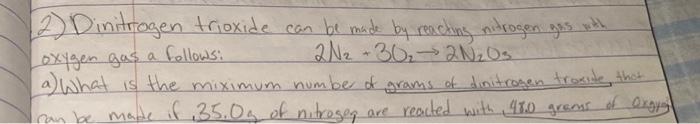 2) Dinitrogen trioxide can be made by reacting nitrogen gas with
oxygen gas a follows: 2N₂ + 3O₂ → 2N₂O₃
a) What is the miximum number of grams of dinitrogen troxide that
can be made if 35.0g of nitrogen are reacted with 48.0 grams of oxygen